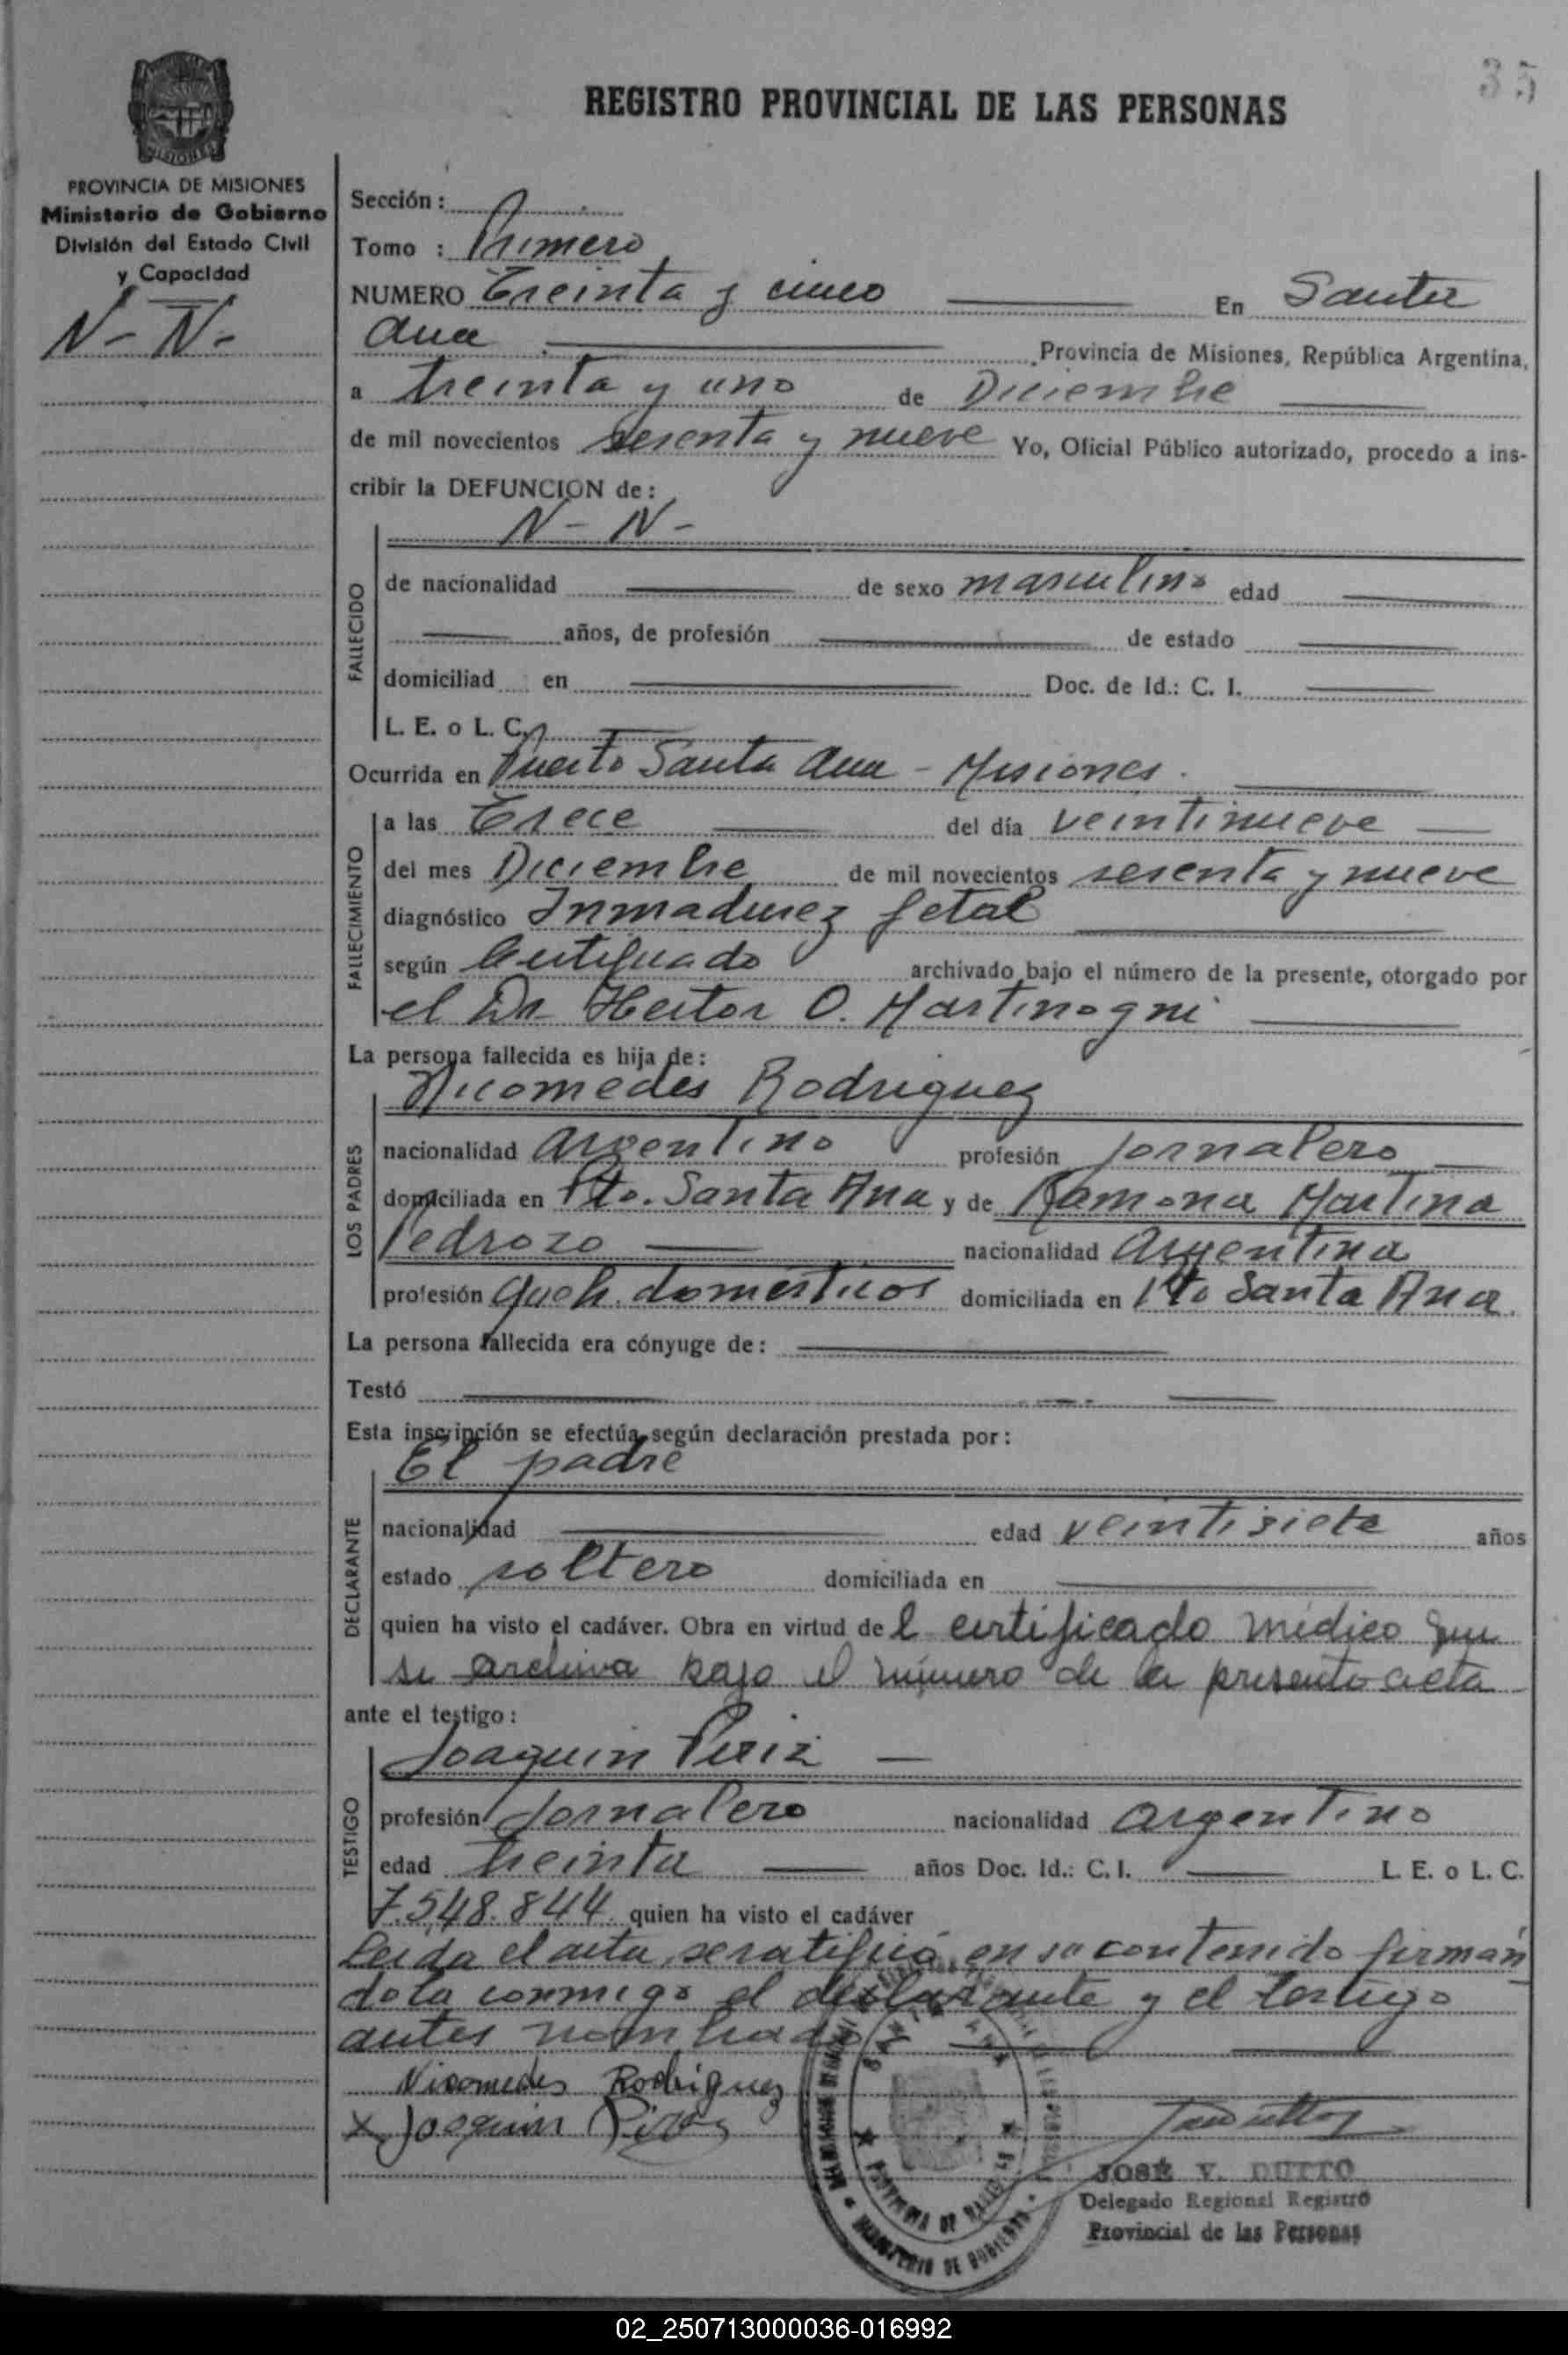 35
REGISTRO PROVINCIAL DE LAS PERSONAS
MISIONES
PROVINCIA DE MISIONES
Ministerio de Gobierno
División del Estado Civil
y Capacidad
N-N-
Sección:
Tomo : Primero
NUMERO Treinta y cinco En Santa
Ana Provincia de Misiones, República Argentina,
a treinta y uno de Diciembre
de mil novecientos sesenta y nueve Yo, Oficial Público autorizado, procedo a ins-
cribir la DEFUNCION de:
N-N-
FALLECIDO
de nacionalidad de sexo masculino edad
años, de profesión de estado
domiciliad en Doc. de Id.: C. I.
L. E. o L. C.
Ocurrida en Puerto Santa Ana - Misiones.
FALLECIMIENTO
a las Trece del día veintinueve
del mes Diciembre de mil novecientos sesenta y nueve
diagnóstico Inmadurez fetal
según Certificado archivado bajo el número de la presente, otorgado por
el Dr Hector O. Martinogni
La persona fallecida es hija de:
LOS PADRES
Nicomedes Rodriguez
nacionalidad argentino profesión Jornalero
domiciliada en Pto. Santa Ana y de Ramona Martina
Pedrozo nacionalidad Argentina
profesión Queh. domésticos domiciliada en Pto Santa Ana.
La persona fallecida era cónyuge de:
Testó
Esta inscripción se efectúa según declaración prestada por:
DECLARANTE
El padre
nacionalidad edad veintisiete años
estado soltero domiciliada en
quien ha visto el cadáver. Obra en virtud del certificado médico que
se archiva bajo el número de la presente acta
ante el testigo:
TESTIGO
Joaquin Piriz
profesión Jornalero nacionalidad argentino
edad treinta años Doc. Id.: C. I. L. E. o L. C.
7.548.844. quien ha visto el cadáver
Leida el acta, se ratificó en su contenido firmán
dola conmigo el declarante y el testigo
antes nombrado
Nicomedes Rodriguez
x Joaquin Piriz
MINISTERIO DE GOBIERNO
JOSE V. DUTTO
Delegado Regional Registro
Provincial de las Personas
02_250713000036-016992